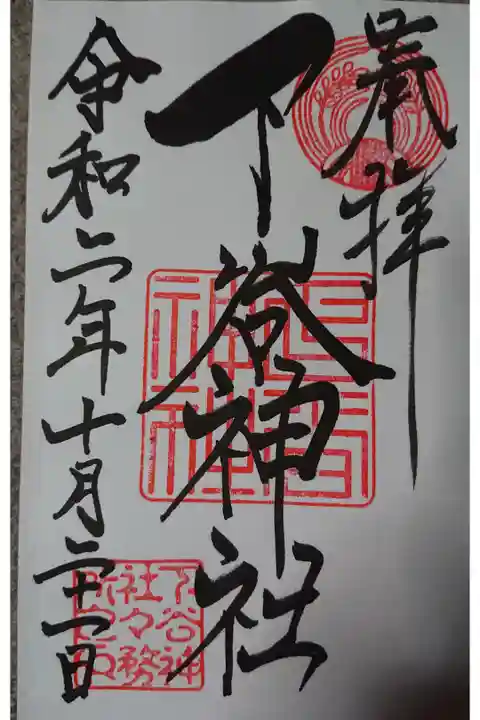 奉拝
下谷神社
令和二年十月二十一日
下谷
神社
下谷神
社々務
所之印